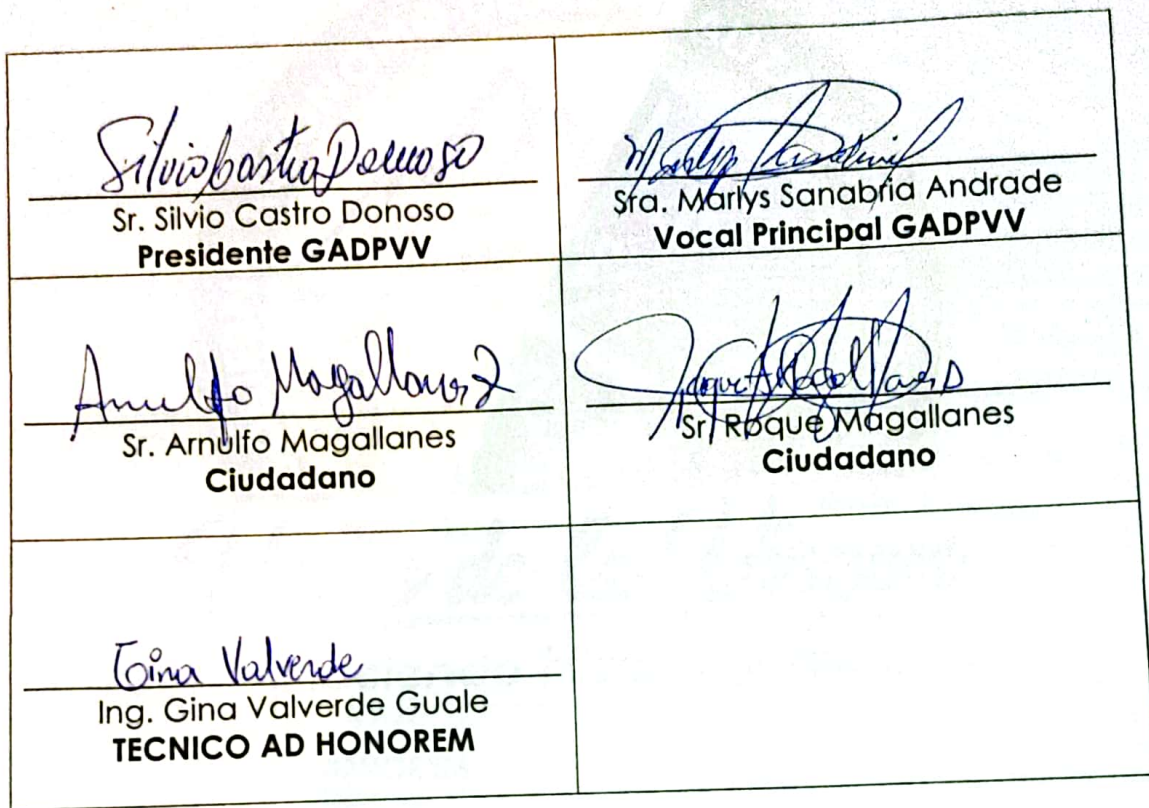 Silvio Castro Donoso
Sr. Silvio Castro Donoso
Presidente GADPVV
Sra. Marlys Sanabria Andrade
Vocal Principal GADPVV
Arnulfo Magallanes
Sr. Arnulfo Magallanes
Ciudadano
Roque Magallanes
Sr. Roque Magallanes
Ciudadano
Gina Valverde
Ing. Gina Valverde Guale
TECNICO AD HONOREM